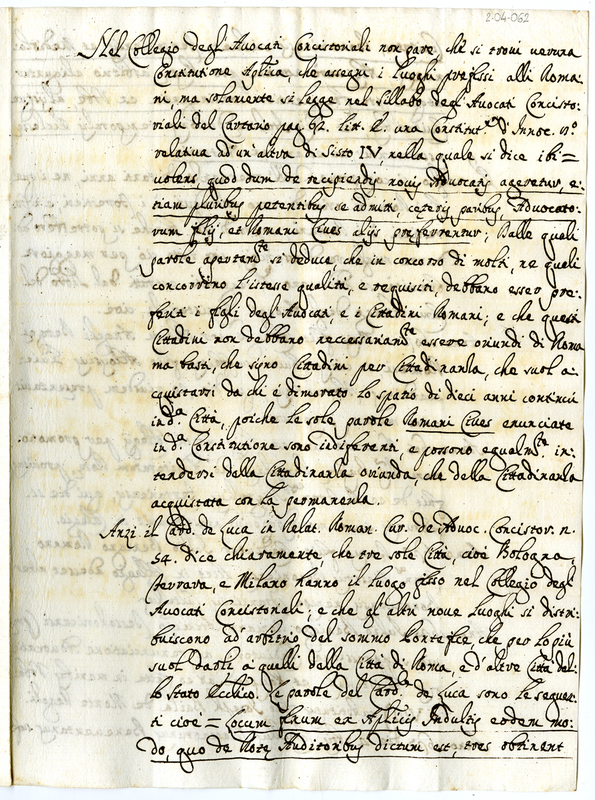 2-04-062
Nel Collegio degli Avocati Concistoriali non pare che si trovi veruna
Constitutione Aplica, che assegni i luoghi prefissi alli Roma=
ni, ma solamente si legge nel Sillabo degl'Avocati Concisto=
riali del Cartario pag. 62. litt. L. una Constitut.ne d'Innoc. VI.o
relativa ad un'altra di Sisto IV, nella quale si dice ibi =
volens, quod dum de recipiendis novis Advocatis ageretur, e=
tiam pluribus petentibus se admitti, ceteris paribus, Advocato=
rum filij, et Romani Cives alijs preferrentur; Dalle quali
parole apertam.te si deduce che in concorso di molti, ne quali
concorrino l'istesse qualità, e requisiti, debbano esser pre=
feriti i figli degl'Avocati, e i Cittadini Romani; e che questi
Cittadini non debbano neccessariam.te essere oriundi di Roma
ma basti, che sijno Cittadini per Cittadinanza, che suol a=
cquistarsi da chi è dimorato lo spatio di dieci anni continui
in d.a Città, poiche le sole parole Romani Cives enunciate
in d.a Constitutione sono indiferenti, e possono egualm.te in=
tendersi della Cittadinanza oriunda, che della Cittadinanza
acquistata con la permanenza.
Anzi il Card. de Luca in Relat. Roman. Cur. de Advoc. Concistor. n.
54. dice chiaramente, che tre sole Città, cioè Bologna,
Ferrara, e Milano hanno il luogo fisso nel Collegio degl
Avocati Concistoriali; e che gl'altri nove luoghi si distri=
buiscono ad'arbitrio del sommo Pontefice, che per lo più
suol darli a quelli della Città di Roma, e d'altre Città del=
lo Stato Ecclico. Le parole del Card. de Luca sono le seguen=
ti cioè = Locum firum ex Aplicis Indultis eodem mo=
do, quo de Rote Auditoribus dictum est, tres obtinent